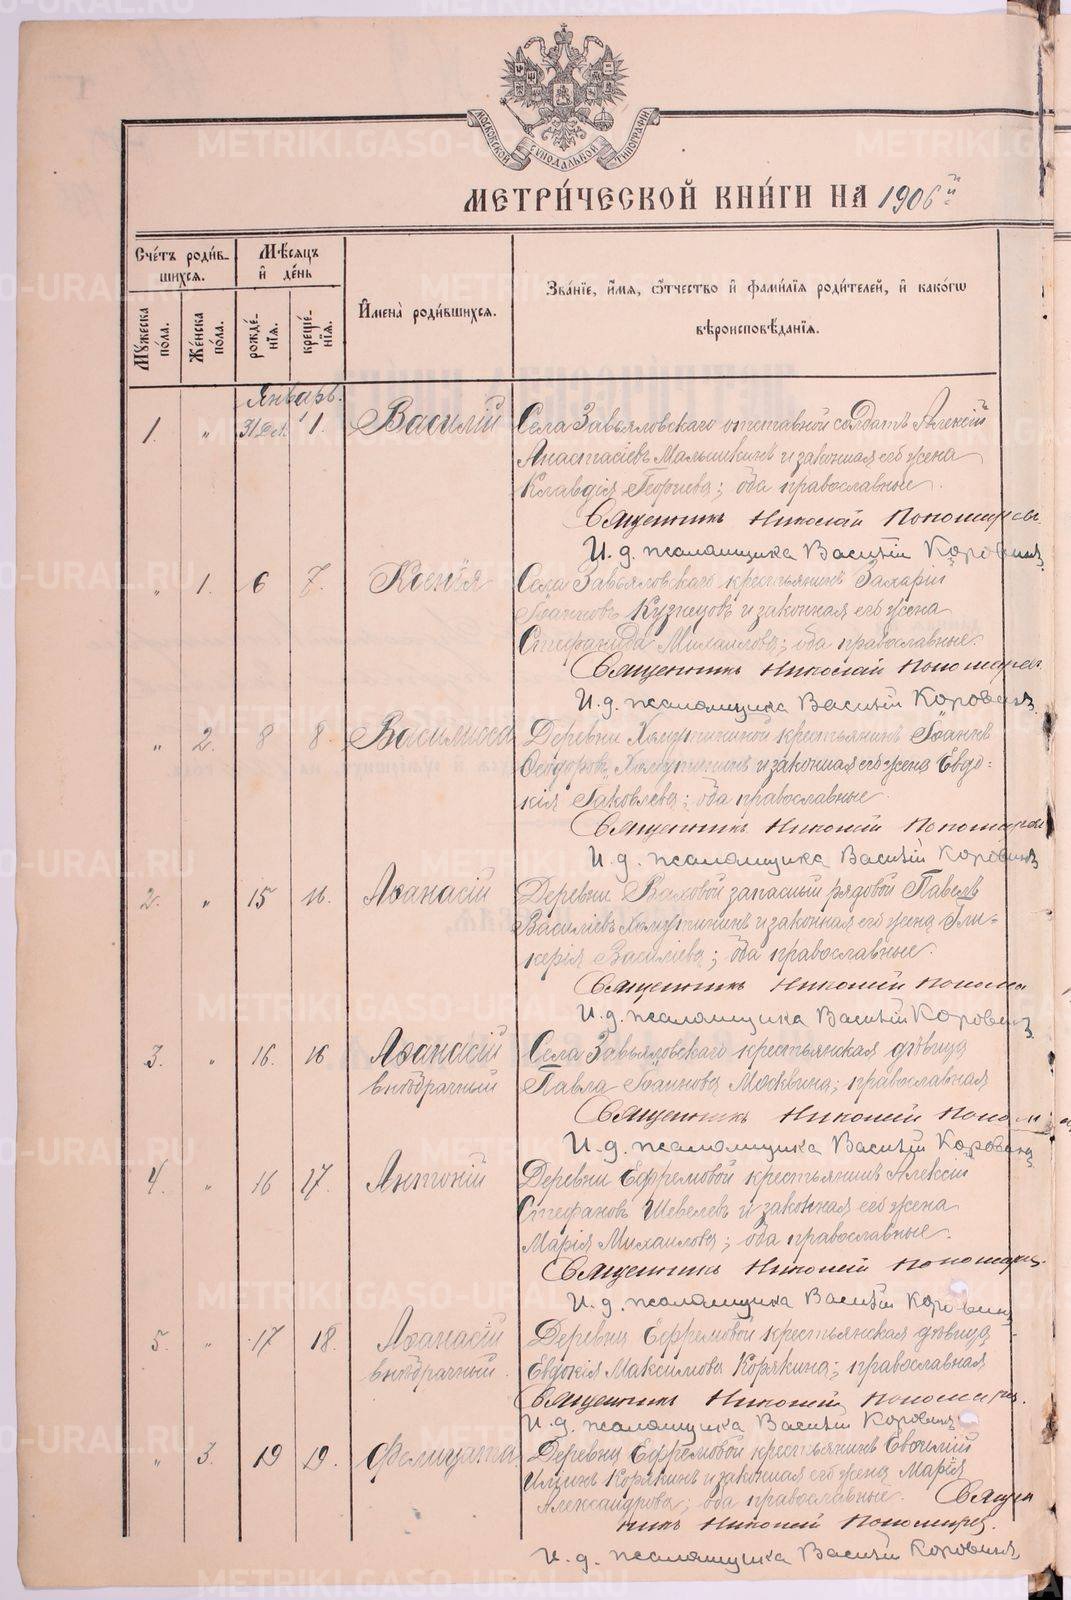 МОСКОВСКОЙ СѴНОДАЛЬНОЙ ТИПОГРАФІИ
МЕТРИ́ЧЕСКОЙ КНИ́ГИ НА 1906й
Сче́тъ роди́вшихся.
Мѣ́сяцъ и҆ де́нь
И҆мена̀ роди́вшихся.
Зва́нїе, и҆́мѧ, ѻ҆́тчество и҆ фами́лїѧ роди́телей, и҆ како́гѡ вѣроисповѣ́данїѧ.
Мꙋ́жеска по́ла.
Же́нска по́ла.
рожде́нїѧ.
креще́нїѧ.
Январь.
1. " 31 Дек. 1. Василій Села Завьяловскаго отставной солдатъ Алексій
Анастасіевъ Малышкинъ и законная его жена
Клавдія Георгіева; оба православные.
Священникъ Николай Пономарев
И. д. псаломщика Василій Коровинъ
" 1. 6 7. Ксенія Села Завьяловскаго крестьянинъ Захарій
Іоанновъ Кузнецовъ и законная его жена
Стефанида Михаилова; оба православные.
Священникъ Николай Пономарев
И. д. псаломщика Василій Коровинъ
" 2. 8 8. Василисса Деревни Хомутининой крестьянинъ Іоаннъ
Ѳеодоровъ Хомутининъ и законная его жена Евдо=
кія Іаковлева; оба православные.
Священникъ Николай Пономарев
И. д. псаломщика Василій Коровинъ
2. " 15 16. Аѳанасій Деревни запасный рядовой Павелъ
Василіевъ Хомутининъ и законная его жена Гли=
керія Василіева; оба православные.
Священникъ Николай Понома
И. д. псаломщика Василій Коровинъ
3. " 16. 16 Аѳанасій Села Завьяловскаго крестьянская дѣвица
внѣбрачный Павла Іоаннова Москвина; православная
Священникъ Николай Поном
И. д. псаломщика Василій Коровинъ
4. " 16 17. Антоній Деревни Ефремовой крестьянинъ Алексій
Стефановъ Шевелевъ и законная его жена
Марія Михаилова; оба православные.
Священникъ Николай Пономарев
И. д. псаломщика Василій Коровинъ
5. " 17 18. Аѳанасій Деревни Ефремовой крестьянская дѣвица
внѣбрачный. Евдокія Максимова Корякина; православная
Священникъ Николай Пономарев.
И. д. псаломщика Василій Коровинъ
" 3. 19 19. Фелицата Деревни Ефремовой крестьянинъ
Корякинъ и законная его жена Марія
Александрова; оба православные. Священ
никъ Николай Пономарев.
И. д. псаломщика Василій Коровинъ
METRIKI.GASO-URAL.RU